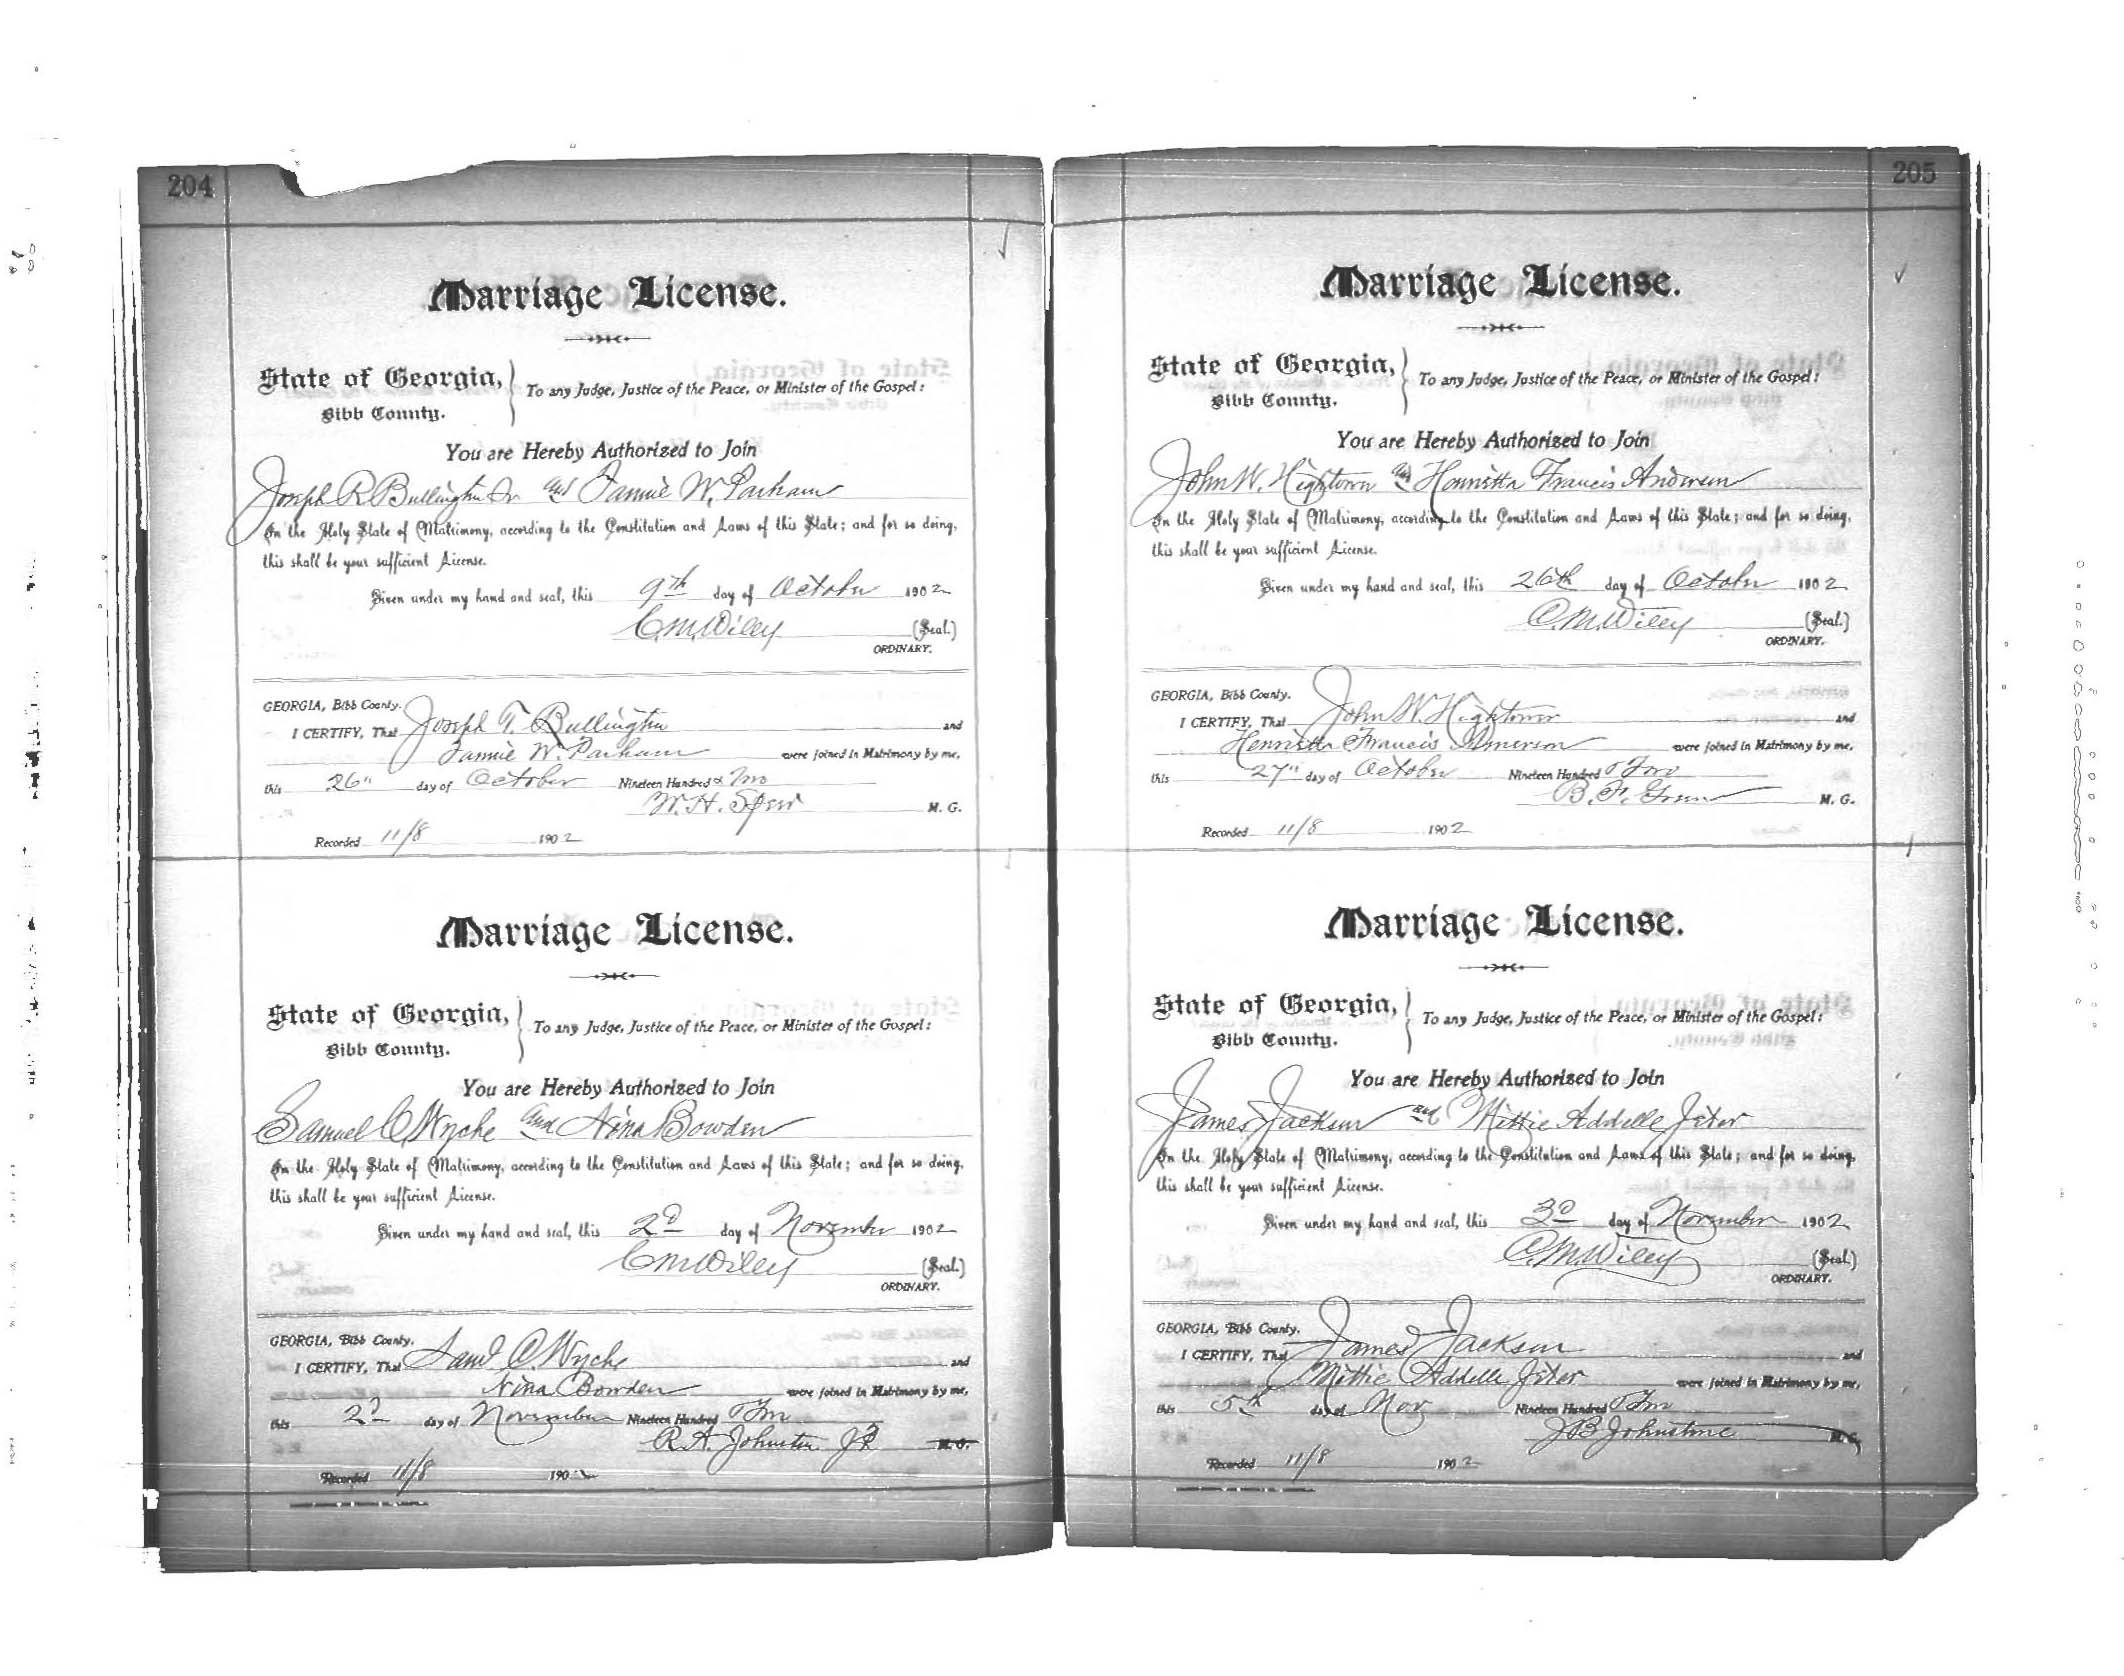 204
Marriage License.
State of Georgia,
Bibb County.
To any Judge, Justice of the Peace, or Minister of the Gospel:
You are Hereby Authorized to Join
Joseph R Bullington Jr and Fannie W. Parham
In the Holy State of Matrimony, according to the Constitution and Laws of this State; and for so doing,
this shall be your sufficient License.
Given under my hand and seal, this 9th day of October 1902
C. M. Wiley (Seal.)
ORDINARY.
GEORGIA, Bibb County.
I CERTIFY, That Joseph T. Bullington and
Fannie W. Parham were joined in Matrimony by me,
this 26" day of October Nineteen Hundred & Two
W. H. M. G.
Recorded 11/8 1902
Marriage License.
State of Georgia,
Bibb County.
To any Judge, Justice of the Peace, or Minister of the Gospel:
You are Hereby Authorized to Join
Samuel C Wyche and Nina Bowden
In the Holy State of Matrimony, according to the Constitution and Laws of this State; and for so doing,
this shall be your sufficient License.
Given under my hand and seal, this 2d day of November 1902
C M Wiley (Seal.)
ORDINARY.
GEORGIA, Bibb County.
I CERTIFY, That Saml C. Wyche and
Nina Bowden were joined in Matrimony by me,
this 2d day of November Nineteen Hundred & Two
R. A. Johnston M. G.
Recorded 11/8 1902
205
Marriage License.
State of Georgia,
Bibb County.
To any Judge, Justice of the Peace, or Minister of the Gospel:
You are Hereby Authorized to Join
John W. Hightower and Henrietta Francis Anderson
In the Holy State of Matrimony, according to the Constitution and Laws of this State; and for so doing,
this shall be your sufficient License.
Given under my hand and seal, this 26th day of October 1902
C. M. Wiley (Seal.)
ORDINARY.
GEORGIA, Bibb County.
I CERTIFY, That John W. Hightower and
Henrietta Francis were joined in Matrimony by me,
this 27" day of October Nineteen Hundred & Two
B. F. Green M. G.
Recorded 11/8 1902
Marriage License.
State of Georgia,
Bibb County.
To any Judge, Justice of the Peace, or Minister of the Gospel:
You are Hereby Authorized to Join
James Jackson and Mittie Addelle Jeter
In the Holy State of Matrimony, according to the Constitution and Laws of this State; and for so doing,
this shall be your sufficient License.
Given under my hand and seal, this 3d day of November 1902
C. M. Wiley (Seal.)
ORDINARY.
GEORGIA, Bibb County.
I CERTIFY, That James Jackson and
Mittie Addelle Jeter were joined in Matrimony by me,
this 5th day of Nov Nineteen Hundred & Two
J B Johnstone M. G.
Recorded 11/8 1902